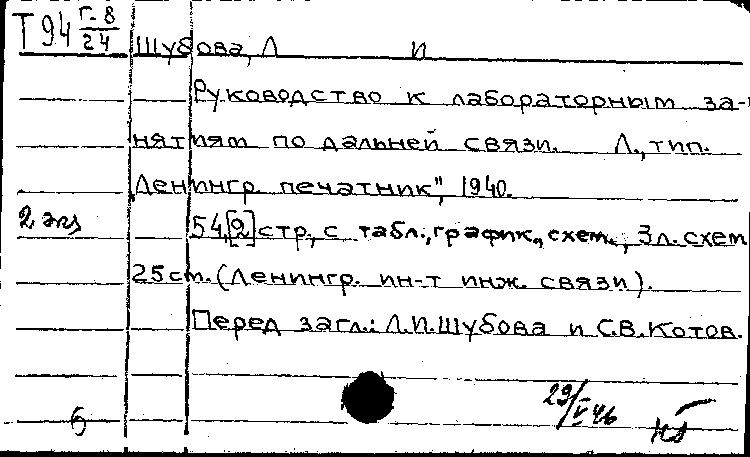 Т 94 Г-8/24
Шубова, Л И
Руководство к лабораторным за-
нятиям по дальней связи. Л., тип.
„Ленингр. печатник", 1940.
2 экз 54,[2] стр., с табл., график., схем., 3 л. схем
25 см. (Ленингр. ин-т инж. связи).
Перед загл.: Л.И.Шубова и С.В.Котов.
29/V 46
б